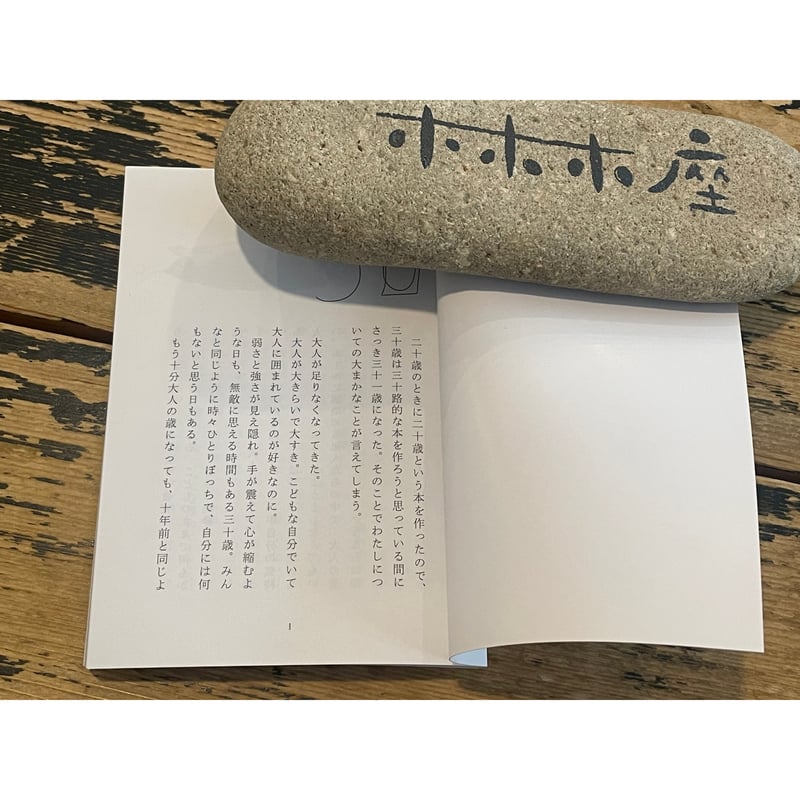 ホホホ座
二十歳のときに二十歳という本を作ったので、
三十歳は三十路的な本を作ろうと思っている間に
さっき三十一歳になった。そのことでわたしにつ
いての大まかなことが言えてしまう。
大人が足りなくなってきた。
大人が大きらいで大すき。こどもな自分でいて
大人に囲まれているのが好きなのに。
弱さと強さが見え隠れ。手が震えて心が縮むよ
うな日も、無敵に思える時間もある三十歳。みん
なと同じように時々ひとりぼっちで、自分には何
もないと思う日もある。
もう十分大人の歳になっても、十年前と同じよ
1